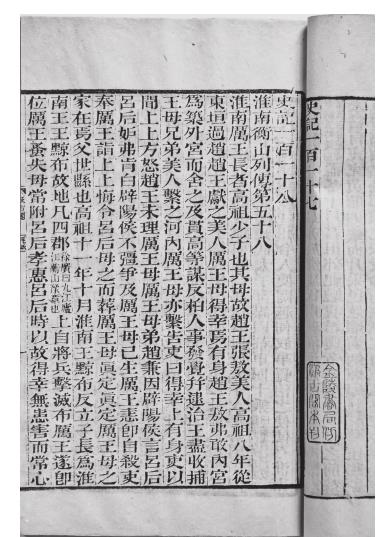 史記一百一十七
金陵書局仿
汲古閣本刊
史記一百一十八
淮南衡山列傳第五十八
淮南厲王長者高祖少子也其母故趙王張敖美人高祖八年從
東垣過趙趙王獻之美人厲王母得幸焉有身趙王敖弗敢內宮
爲築外宮而舍之及貫高等謀反柏人事發覺并逮治王盡收捕
王母兄弟美人繫之河內厲王母亦繫告吏曰得幸上有身吏以
聞上上方怒趙王未理厲王母厲王母弟趙兼因辟陽侯言呂后
呂后妒弗肯白辟陽侯不彊爭及厲王母已生厲王恚卽自殺吏
奉厲王詣上上悔令呂后母之而葬厲王母眞定眞定厲王母之
家在焉父世縣也高祖十一年十月淮南王黥布反立子長爲淮
南王王黥布故地凡四郡徐廣曰九江廬江衡山豫章也上自將兵擊滅布厲王遂卽
位厲王蚤失母常附呂后孝惠呂后時以故得幸無患害而常心